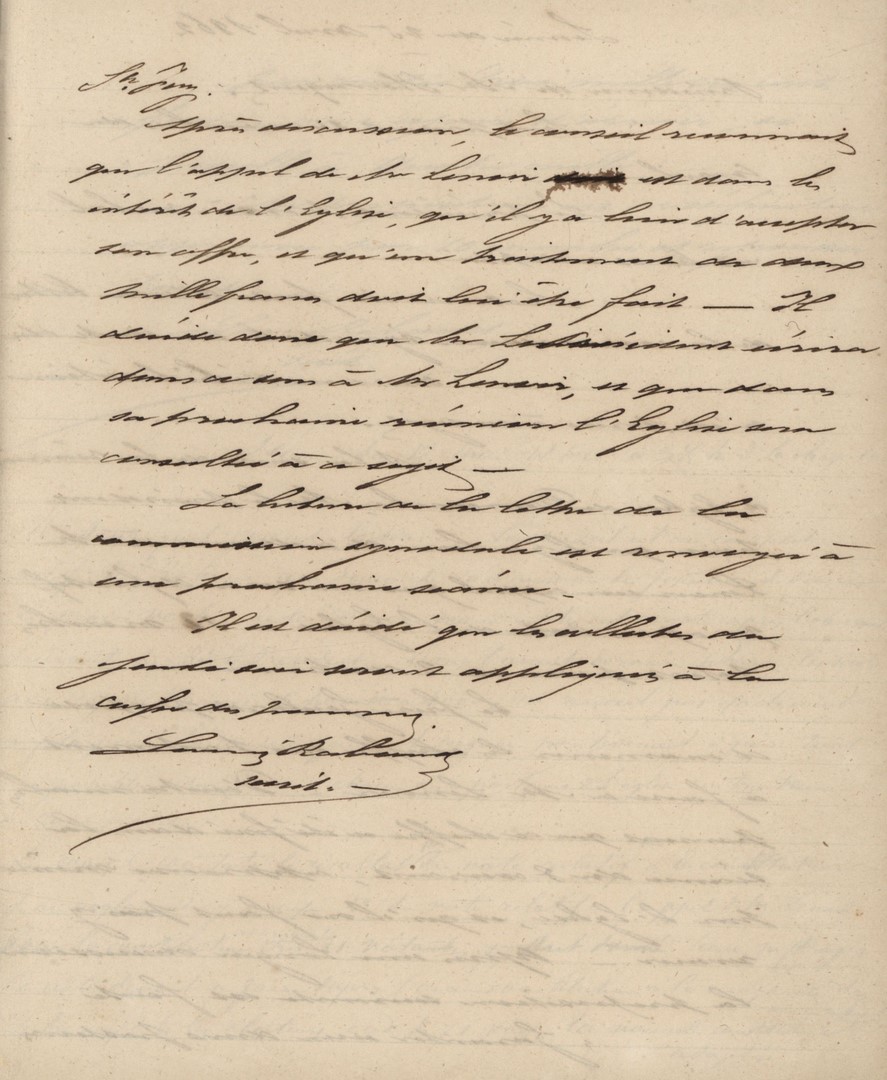 Après discussion, le conseil reconnait
que l'appel de Mr Lenoir est dans les
intérêt de l'Eglise, qu'il y a lieu d'accepter
son offre, et qu'un traitement de deux
mille francs doit lui être fait — Il
décide donc que Mr Le Président écrira
dans ce sens à Mr Lenoir, et que dans
sa prochaine réunion l'Eglise sera
consultée à ce sujet —
La lecture de la lettre de la
commission synodale est renvoyée à
une prochaine séance —
Il est décidé que les collectes du
jeudi soir seront appliquées à la
caisse des pauvres.
secrét. —